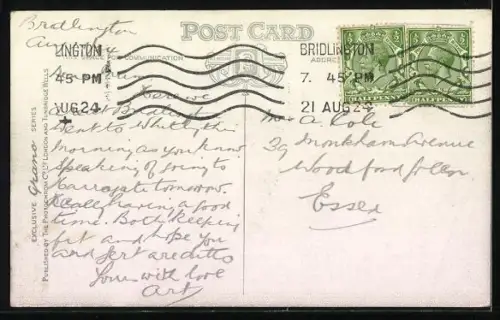 Bridlington
POST CARD
FOR COMMUNICATION
ADDRESS
LINGTON
45 PM
AUG 24
BRIDLINGTON
7. 45 PM
21 AUG 24
HALFPENNY
HALFPENNY
EXCLUSIVE Grano SERIES
PUBLISHED BY THE PHOTOCHROM CO. LTD LONDON AND TUNBRIDGE WELLS
at Bridlington
Went to Whitby this
morning as you know
speaking of going to
Harrogate tomorrow.
Really having a good
time. Both keeping
fit and hope you
and are ditto
Yours with love
Art
A Cole
39 Monkhams Avenue
Woodford Green
Essex